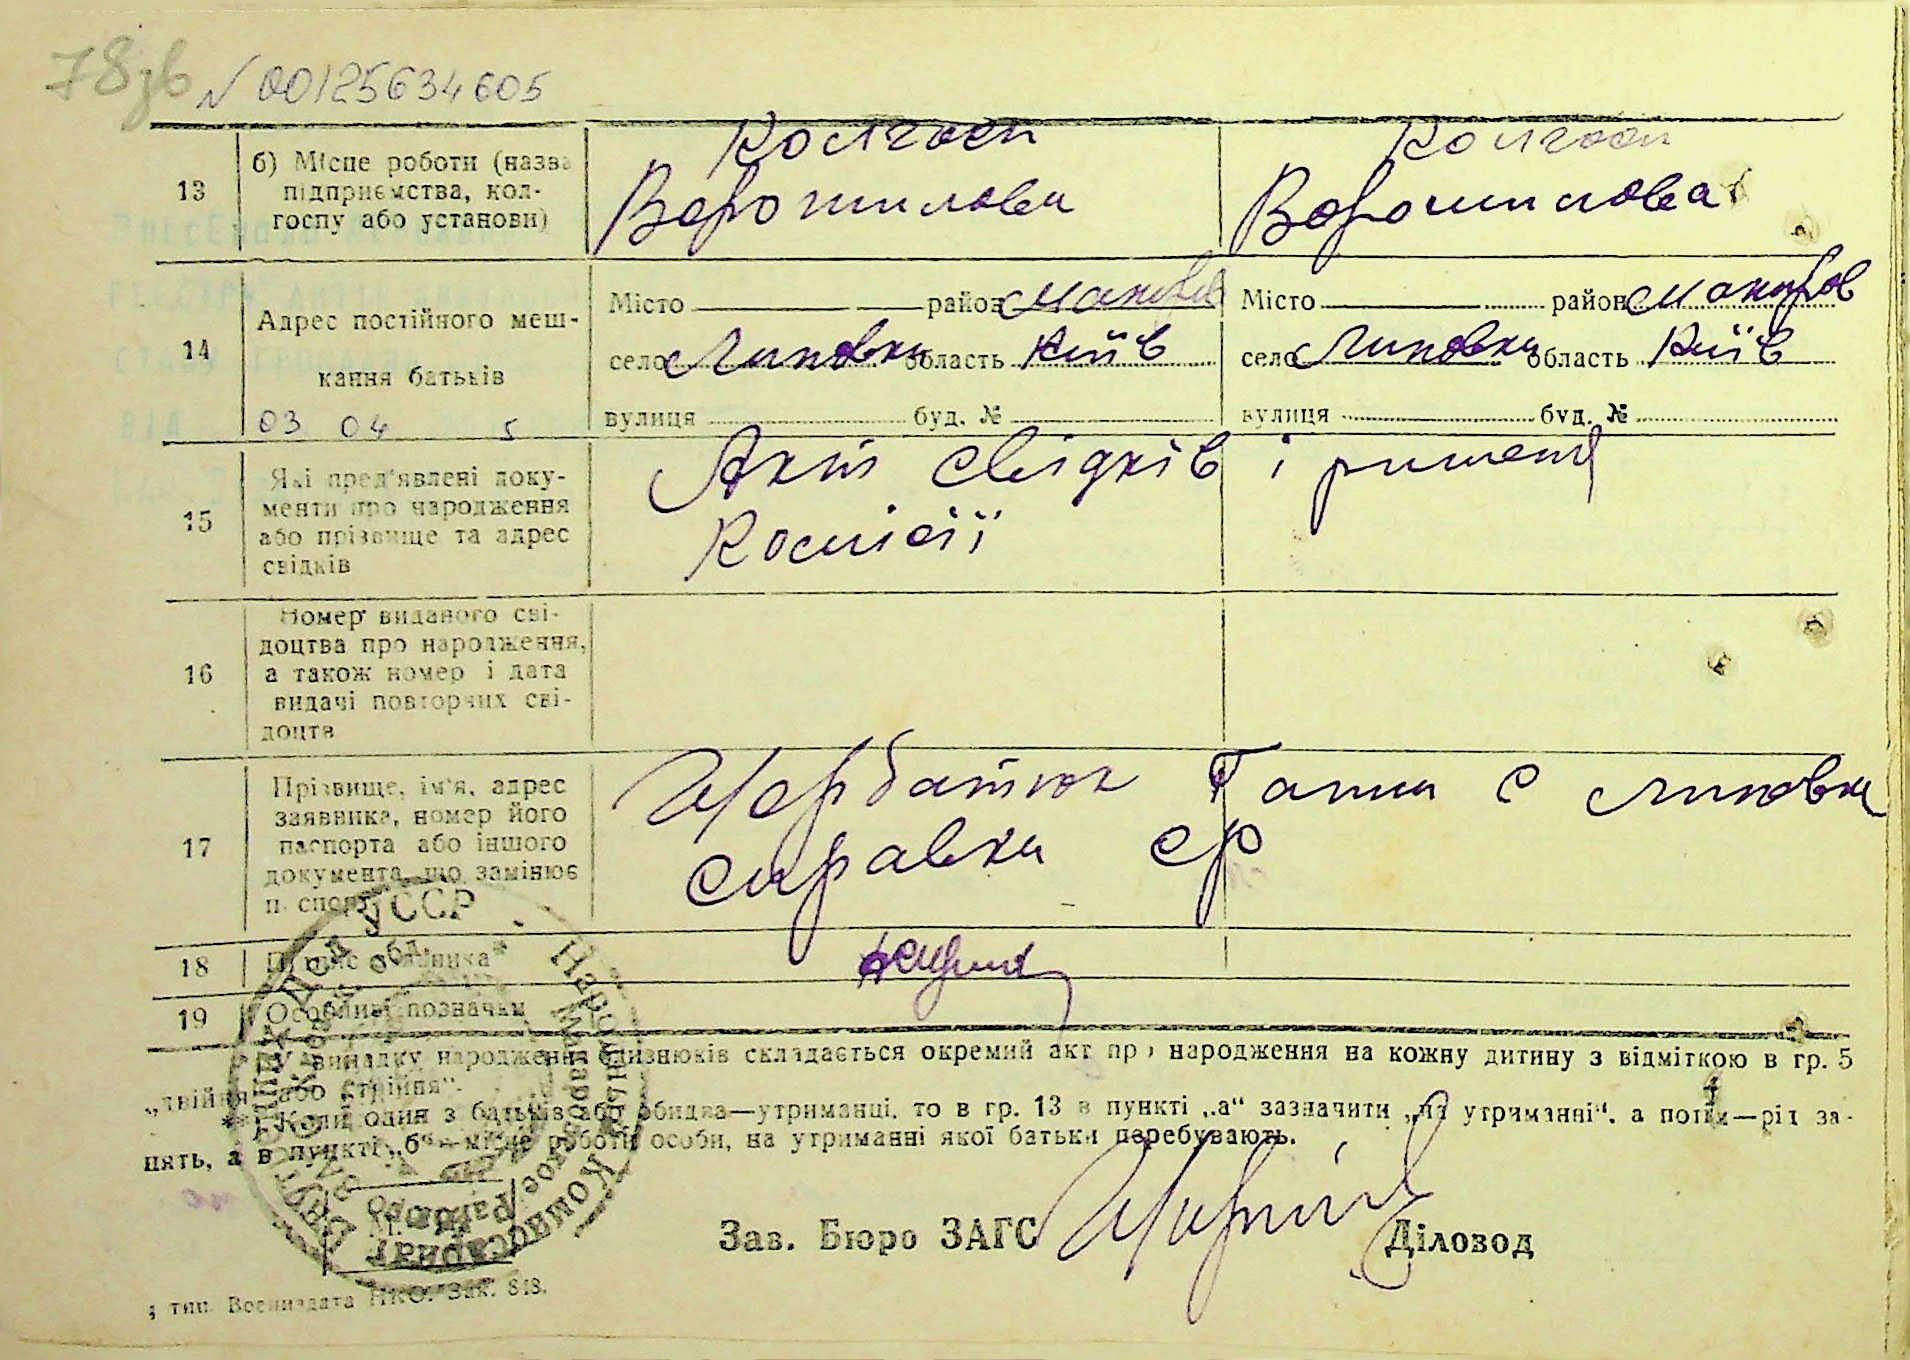 78зв № 00125634605
13 б) Місце роботи (назва підприємства, колгоспу або установи) Колгосп Ворошилова Колгосп Ворошилова
14 Адрес постійного мешкання батьків
Місто район Макарів Місто район Макаров
село Липовка область Київ село Липовка область Київ
03 04 5
вулиця буд. № вулиця буд. №
15 Які пред'явлені документи про народження або прізвище та адрес свідків
Акт свідків і ришення
Комісії
16 Номер виданого свідоцтва про народження, а також номер і дата видачі повторних свідоцтв
17 Прізвище, ім'я, адрес заявника, номер його паспорта або іншого документа, що замінює паспорт
Щербатюк Ганна с Липовка
справка ср
18 Підпис заявника
19 Особливі позначки
*) У випадку народження близнюків складається окремий акт про народження на кожну дитину з відміткою в гр. 5
„двійня або трійня“.
**) Коли один з батьків або обидва—утриманці, то в гр. 13 в пункті „а“ зазначити „на утриманні“, а потім—рід за-
нять, а в пункті „б“—місце роботи особи, на утриманні якої батьки перебувають.
Зав. Бюро ЗАГС Діловод
тип. Воениздата НКО. Зак. 848.